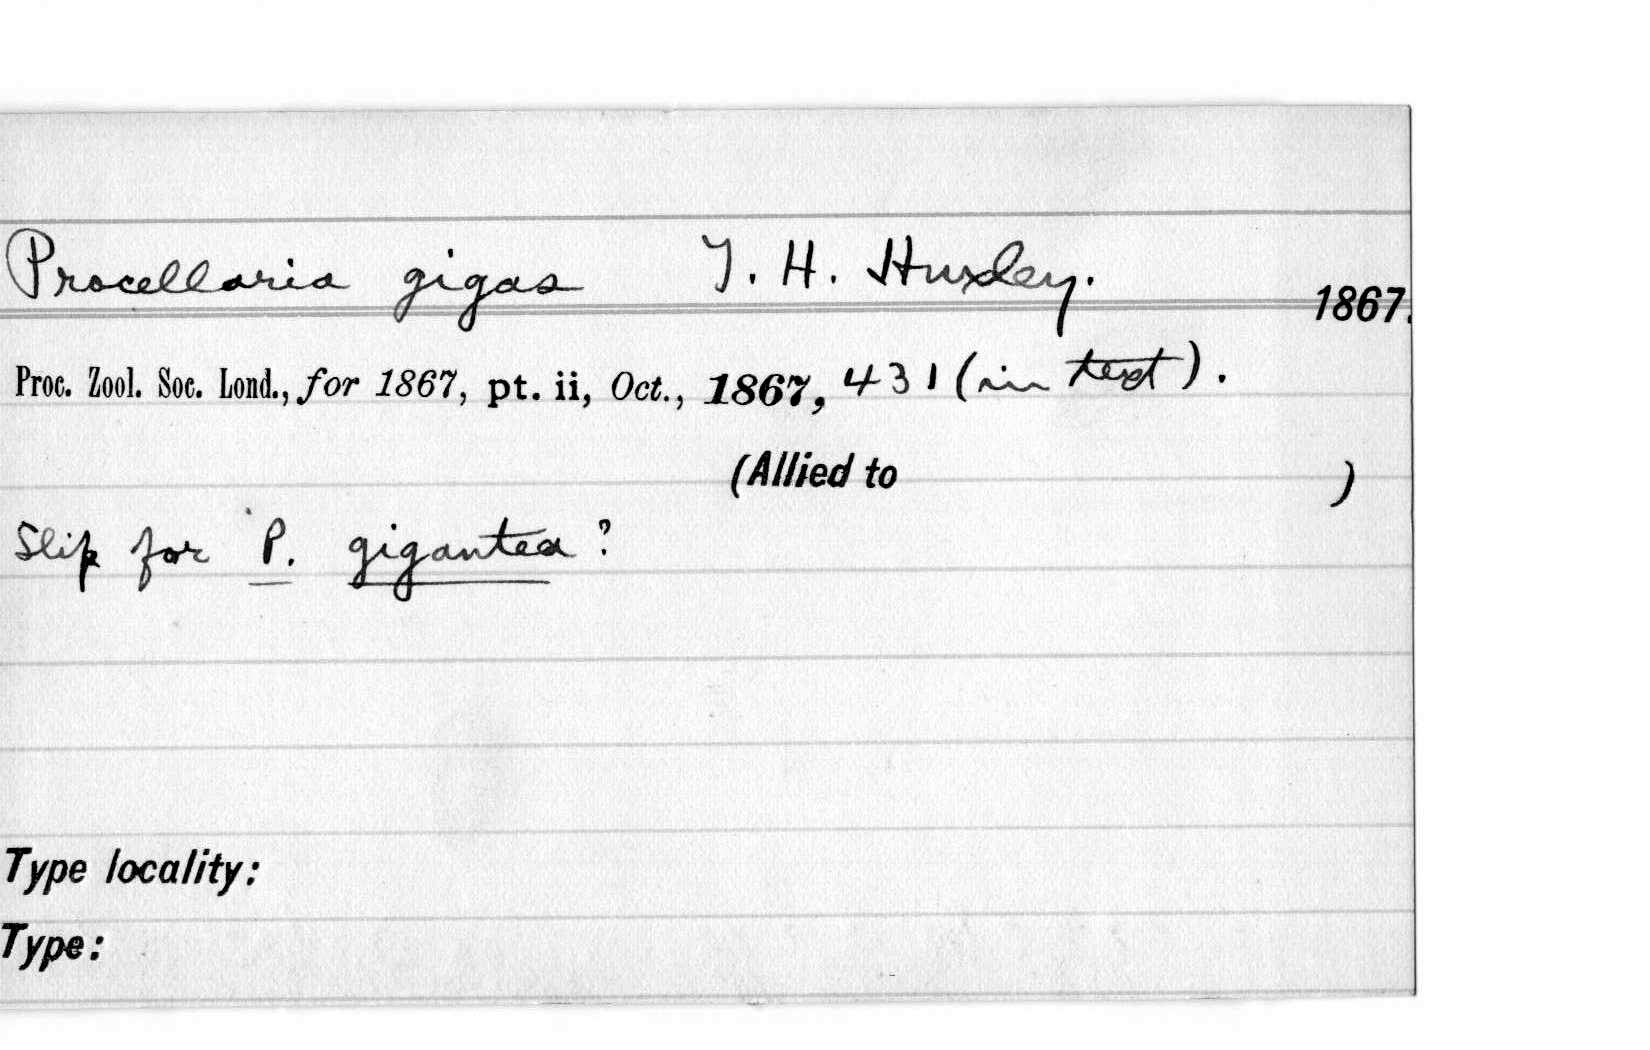 Procellaria gigas T. H. Huxley. 1867.
Proc. Zool. Soc. Lond., for 1867, pt. ii, Oct., 1867, 431 (in text).
(Allied to )
Slip for P. gigantea ?
Type locality:
Type: